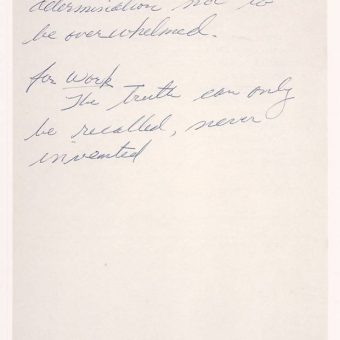 determination not to
be overwhelmed.
for work
The Truth can only
be recalled, never
invented